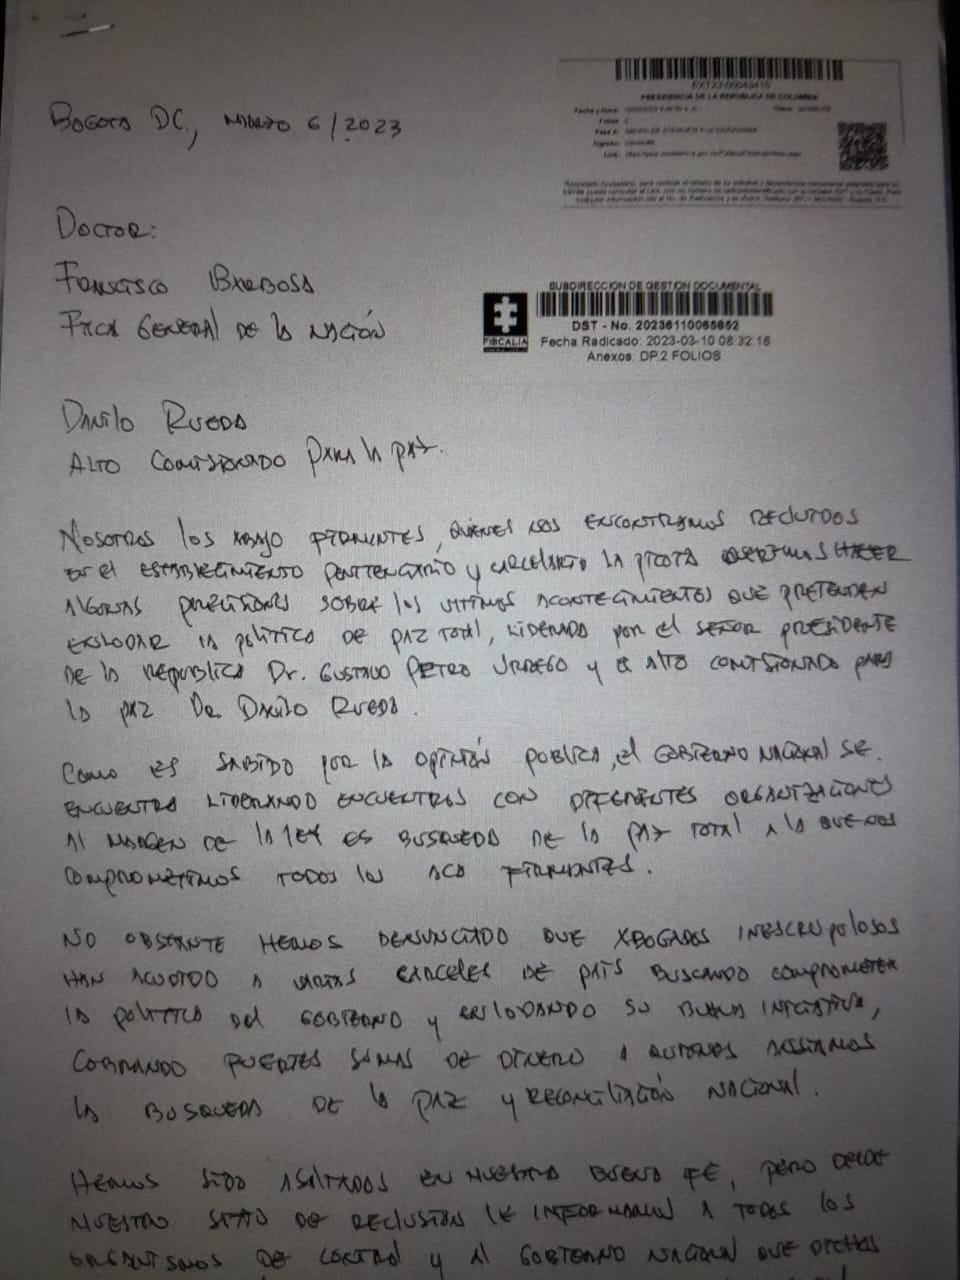 EXT23-00043416
PRESIDENCIA DE LA REPUBLICA DE COLOMBIA
BOGOTA DC, MARZO 6/2023
DOCTOR:
FRANCISCO BARBOSA
FISCAL GENERAL DE LA NACIÓN
SUBDIRECCION DE GESTION DOCUMENTAL
FISCALIA
DST - No. 20236110065852
Fecha Radicado: 2023-03-10 08:32:16
Anexos: DP.2 FOLIOS
DANILO RUEDA
ALTO COMISIONADO PARA LA PAZ.
NOSOTROS LOS ABAJO FIRMANTES, QUIENES NOS ENCONTRAMOS RECLUIDOS
EN EL ESTABLECIMIENTO PENITENCIARIO Y CARCELARIO LA PICOTA QUEREMOS HACER
ALGUNAS PRECISIONES SOBRE LOS ULTIMOS ACONTECIMIENTOS QUE PRETENDEN
ENLODAR LA POLITICA DE PAZ TOTAL, LIDERADA POR EL SEÑOR PRESIDENTE
DE LA REPUBLICA Dr. GUSTAVO PETRO URREGO Y EL ALTO COMISIONADO PARA
LA PAZ DR. DANILO RUEDA.
COMO ES SABIDO POR LA OPINIÓN PUBLICA, EL GOBIERNO NACIONAL SE
ENCUENTRA LIDERANDO ENCUENTROS CON DIFERENTES ORGANIZACIONES
AL MARGEN DE LA LEY ES BUSQUEDA DE LA PAZ TOTAL A LA QUE NOS
COMPROMETIMOS TODOS LOS ACA FIRMANTES.
NO OBSTANTE HEMOS DENUNCIADO QUE ABOGADOS INESCRUPOLOSOS
HAN ACUDIDO A VARIAS CARCELES DE PAIS BUSCANDO COMPROMETER
LA POLITICA DEL GOBIERNO Y ENLODANDO SU BUENA INICIATIVA,
COBRANDO FUERTES SUMAS DE DINERO A QUIENES ANSIAMOS
LA BUSQUEDA DE LA PAZ Y RECONCILIACIÓN NACIONAL.
HEMOS SIDO ASALTADOS EN NUESTRA BUENA FE, PERO DESDE
NUESTRO SITIO DE RECLUSIÓN LE INFORMAMOS A TODOS LOS
ORGANISMOS DE CONTROL Y AL GOBIERNO NACIONAL QUE DICHAS